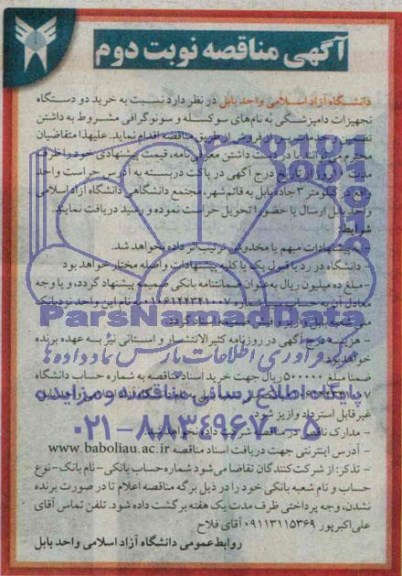 آگهی مناقصه نوبت دوم
دانشگاه آزاد اسلامی واحد بابل در نظر دارد نسبت به خرید دو دستگاه
تجهیزات دامپزشکی به نام‌های سوکسله و سونوگرافی مشروط به داشتن
از طریق مناقصه اقدام نماید. علیهذا متقاضیان
محترم می در دست داشتن معرفی‌نامه، قیمت پیشنهادی خود را ظرف
مدت تاریخ درج آگهی در پاکت دربسته به آدرس حراست واحد
کیلومتر ۳ جاده بابل به قائم‌شهر، مجتمع دانشگاهی دانشگاه آزاد اسلامی
واحد بابل ارسال یا حضوراً تحویل حراست نموده و رسید دریافت نمایند.
شرایط:
پیشنهادات مبهم یا مخدوش ترتیب اثر داده نخواهد شد.
- دانشگاه در رد یا قبول یک یا کلیه پیشنهادات واصله مختار خواهد بود
- مبلغ ده میلیون ریال به عنوان ضمانتنامه بانکی ضمیمه پیشنهاد گردد، و یا وجه
معادل آن به حساب به نام این واحد نزد بانک
- هزینه درج آگهی در روزنامه کثیرالانتشار و استانی نیز به عهده برنده
خواهد بود
ضمناً مبلغ ۵۰۰۰۰۰ ریال جهت خرید اسناد مناقصه به شماره حساب دانشگاه
غیرقابل استرداد واریز شود.
- مدارک ناقص در مناقصه شرکت داده نخواهد شد.
- آدرس اینترنتی جهت دریافت اسناد مناقصه www.baboliau.ac.ir
- تذکر: از شرکت‌کنندگان تقاضا می‌شود شماره حساب بانکی - نام بانک - نوع
حساب و نام شعبه بانکی خود را در ذیل برگه مناقصه اعلام تا در صورت برنده
نشدن، وجه پرداختی ظرف مدت یک هفته برگشت داده شود. تلفن تماس آقای
علی‌اکبرپور ۰۹۱۱۳۱۱۵۳۶۹ آقای فلاح
روابط عمومی دانشگاه آزاد اسلامی واحد بابل
ParsNamadData
فرآوری اطلاعات پارس نماد داده ها
پایگاه اطلاع رسانی مناقصه و مزایده
۰۲۱-۸۸۳۴۹۶۷۰-۵